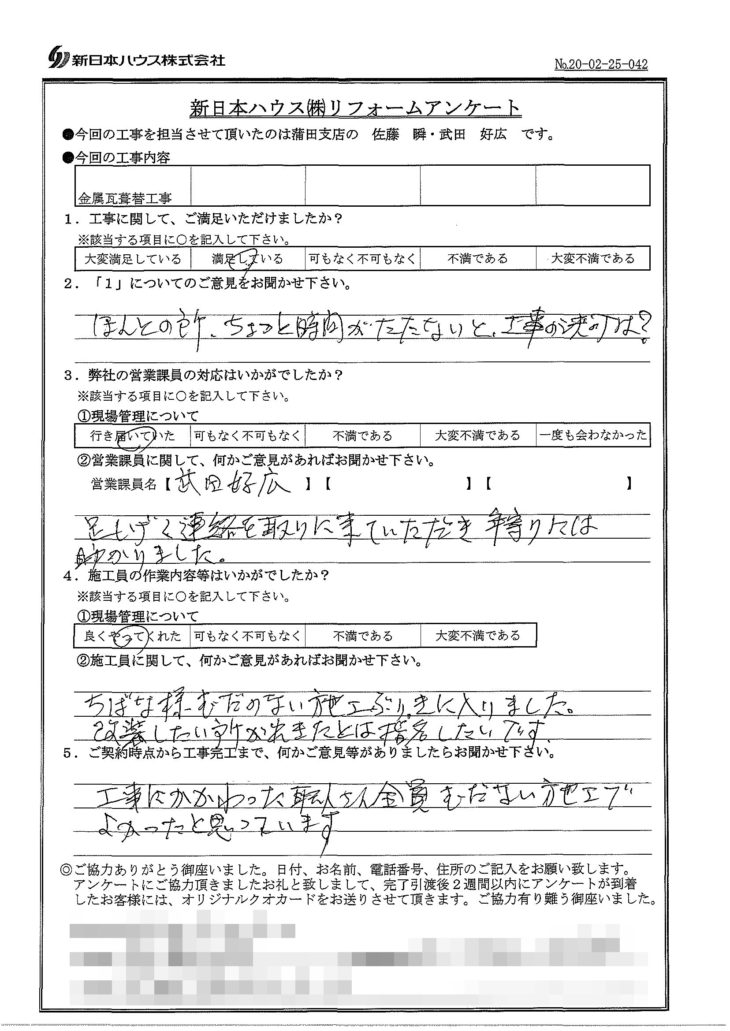 新日本ハウス株式会社
№20-02-25-042
新日本ハウス㈱リフォームアンケート
●今回の工事を担当させて頂いたのは蒲田支店の 佐藤 瞬・武田 好広 です。
●今回の工事内容
金属瓦葺替工事
1．工事に関して、ご満足いただけましたか？
※該当する項目に○を記入して下さい。
大変満足している 満足している 可もなく不可もなく 不満である 大変不満である
2．「1」についてのご意見をお聞かせ下さい。
ほんとの所、ちょっと時間がたたないと、工事の決可は?
3．弊社の営業課員の対応はいかがでしたか？
※該当する項目に○を記入して下さい。
①現場管理について
行き届いていた 可もなく不可もなく 不満である 大変不満である 一度も会わなかった
②営業課員に関して、何かご意見があればお聞かせ下さい。
営業課員名【武田好広 】【 】【 】
足しげく連絡を取りに来ていただき 年寄りには
助かりました。
4．施工員の作業内容等はいかがでしたか？
※該当する項目に○を記入して下さい。
①現場管理について
良くやってくれた 可もなく不可もなく 不満である 大変不満である
②施工員に関して、何かご意見があればお聞かせ下さい。
ちばな様むだのない施工ぶり、きに入りました。
改装したい所が出きたとは指名したいです。
5．ご契約時点から工事完工まで、何かご意見等がありましたらお聞かせ下さい。
工事にかかわった職人さん全員むだない施工で
よかったと思っています
◎ご協力ありがとう御座いました。日付、お名前、電話番号、住所のご記入をお願い致します。
アンケートにご協力頂きましたお礼と致しまして、完了引渡後２週間以内にアンケートが到着
したお客様には、オリジナルクオカードをお送りさせて頂きます。ご協力有り難う御座いました。